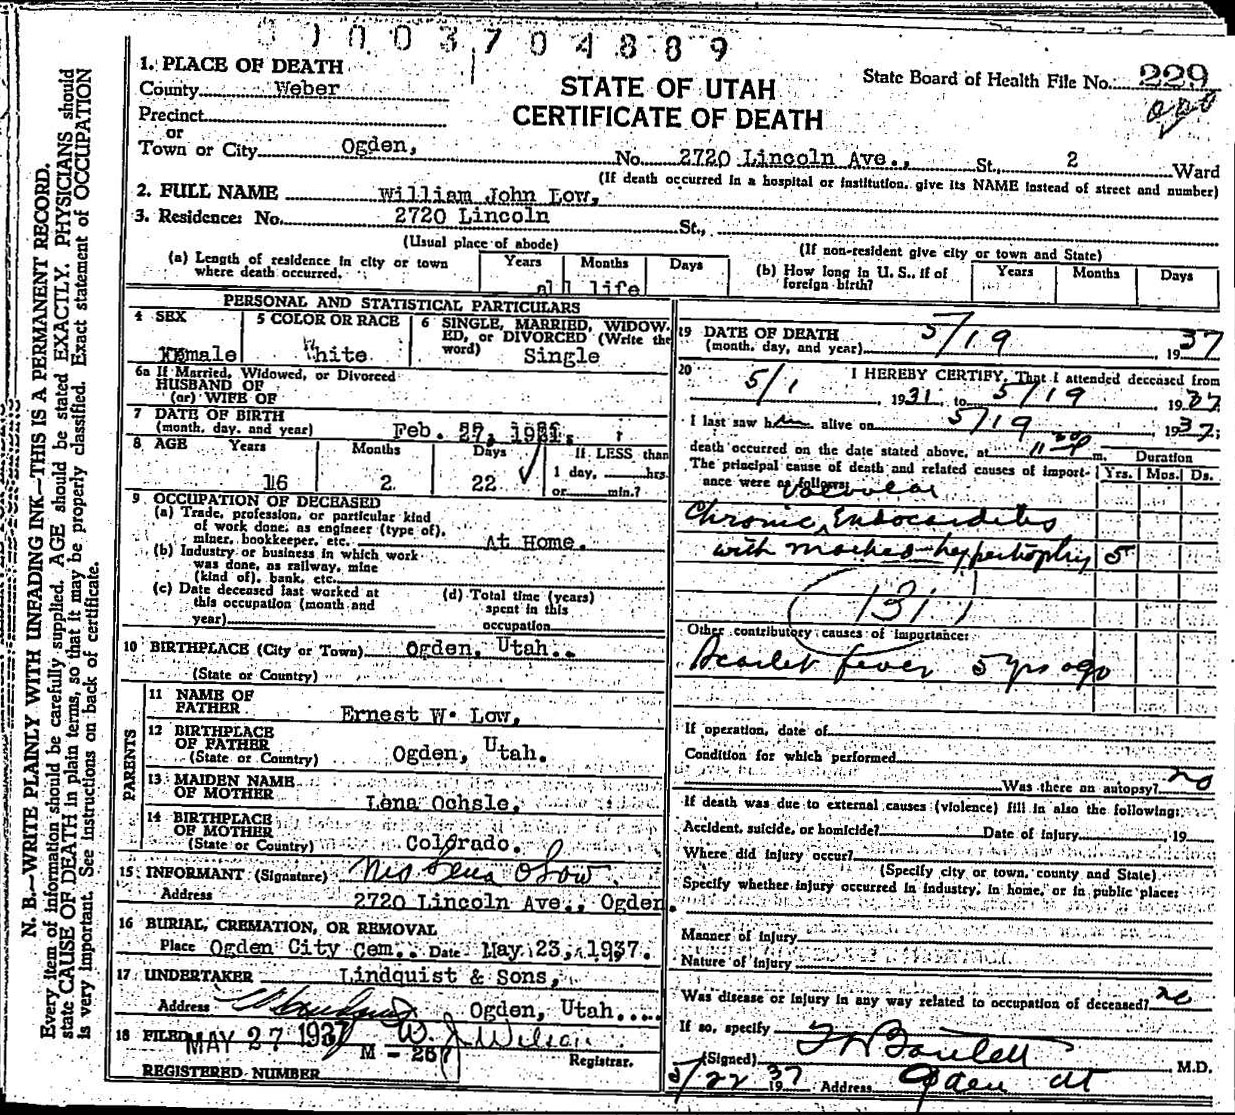 0 1 0 0 3 7 0 4 8 8 9
1. PLACE OF DEATH
County Weber
STATE OF UTAH
State Board of Health File No. 229
Precinct
CERTIFICATE OF DEATH
or
Town or City Ogden, No. 2720 Lincoln Ave., St., 2 Ward
(If death occurred in a hospital or institution, give its NAME instead of street and number)
2. FULL NAME William John Low,
3. Residence: No. 2720 Lincoln St.,
(Usual place of abode) (If non-resident give city or town and State)
(a) Length of residence in city or town where death occurred. Years Months Days
all life
(b) How long in U. S., if of foreign birth? Years Months Days
PERSONAL AND STATISTICAL PARTICULARS
4 SEX
male
5 COLOR OR RACE
White
6 SINGLE, MARRIED, WIDOWED, or DIVORCED (Write the word)
Single
6a If Married, Widowed, or Divorced
HUSBAND OF
(or) WIFE OF
7 DATE OF BIRTH
(month, day, and year) Feb. 27, 1921,
8 AGE Years Months Days If LESS than
16 2 22 1 day, hrs.
or min.?
9 OCCUPATION OF DECEASED
(a) Trade, profession, or particular kind
of work done; as engineer (type of),
miner, bookkeeper, etc. At Home.
(b) Industry or business in which work
was done, as railway, mine
(kind of), bank, etc.
(c) Date deceased last worked at
this occupation (month and
year)
(d) Total time (years)
spent in this
occupation
10 BIRTHPLACE (City or Town) Ogden, Utah..
(State or Country)
PARENTS
11 NAME OF
FATHER Ernest W. Low,
12 BIRTHPLACE
OF FATHER
(State or Country) Ogden, Utah.
13 MAIDEN NAME
OF MOTHER Lena Ochsle,
14 BIRTHPLACE
OF MOTHER
(State or Country) Colorado.
15 INFORMANT (Signature) Mrs Lena O Low
Address 2720 Lincoln Ave., Ogden.
16 BURIAL, CREMATION, OR REMOVAL
Place Ogden City Cem.. Date May 23, 1937.
17 UNDERTAKER Lindquist & Sons,
Address Ogden, Utah....
18 FILED MAY 27 1937 W. J. Wilson
M - 267 Registrar.
REGISTERED NUMBER
19 DATE OF DEATH
(month, day, and year) 5/19, 1937
20 I HEREBY CERTIFY, That I attended deceased from
5/1, 1931, to 5/19 1937
I last saw him alive on 5/19 1937;
death occurred on the date stated above, at 11 m. Duration
The principal cause of death and related causes of importance were as follows: Yrs. Mos. Ds.
Valvular
Chronic Endocarditis
with marked hypertrophy 5
131
Other contributory causes of importance:
Scarlet fever 5 yrs ago
If operation, date of
Condition for which performed
Was there an autopsy? no
If death was due to external causes (violence) fill in also the following:
Accident, suicide, or homicide? Date of injury 19
Where did injury occur?
(Specify city or town, county and State)
Specify whether injury occurred in industry, in home, or in public place:
Manner of injury
Nature of injury
Was disease or injury in any way related to occupation of deceased? no
If so, specify
(Signed) Bartlett M.D.
5/22 1937 Address Ogden Ut
N. B.—WRITE PLAINLY WITH UNFADING INK—THIS IS A PERMANENT RECORD.
Every item of information should be carefully supplied. AGE should be stated EXACTLY. PHYSICIANS should
state CAUSE OF DEATH in plain terms, so that it may be properly classified. Exact statement of OCCUPATION
is very important. See instructions on back of certificate.